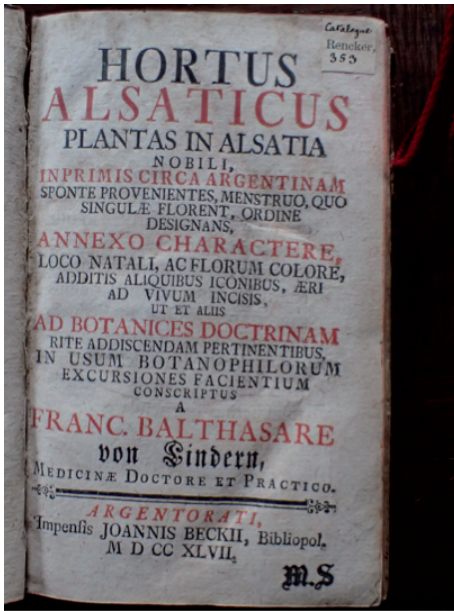 Catalogue
Rencker,
353
HORTUS
ALSATICUS
PLANTAS IN ALSATIA
NOBILI,
INPRIMIS CIRCA ARGENTINAM
SPONTE PROVENIENTES, MENSTRUO, QUO
SINGULÆ FLORENT, ORDINE
DESIGNANS,
ANNEXO CHARACTERE,
LOCO NATALI, AC FLORUM COLORE,
ADDITIS ALIQUIBUS ICONIBUS, ÆRI
AD VIVUM INCISIS,
UT ET ALIIS
AD BOTANICES DOCTRINAM
RITE ADDISCENDAM PERTINENTIBUS,
IN USUM BOTANOPHILORUM
EXCURSIONES FACIENTIUM
CONSCRIPTUS
A
FRANC. BALTHASARE
von Lindern,
MEDICINÆ DOCTORE ET PRACTICO.
ARGENTORATI,
Impensis JOANNIS BECKII, Bibliopol.
M D CC XLVII.
M.S